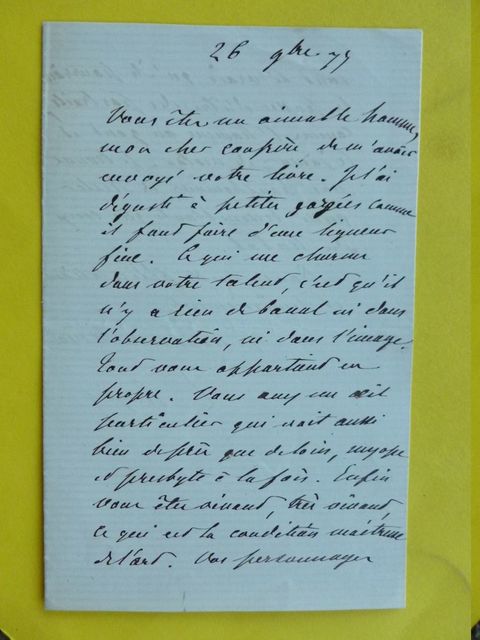 26 9bre 75
Vous êtes un aimable homme,
mon cher confrère de m'avoir
envoyé votre livre. Je l'ai
dégusté à petites gorgées comme
il faut faire d'une liqueur
fine. Ce qui me charme
dans votre talent, c'est qu'il
n'y a rien de banal ni dans
l'observation, ni dans l'image.
Tout vous appartient en
propre. Vous avez un œil
particulier qui voit aussi
bien de près que de loin, myope
et presbyte à la fois. Enfin
vous êtes vivant, très vivant,
ce qui est la condition maîtresse
de l'art. Vos personnages